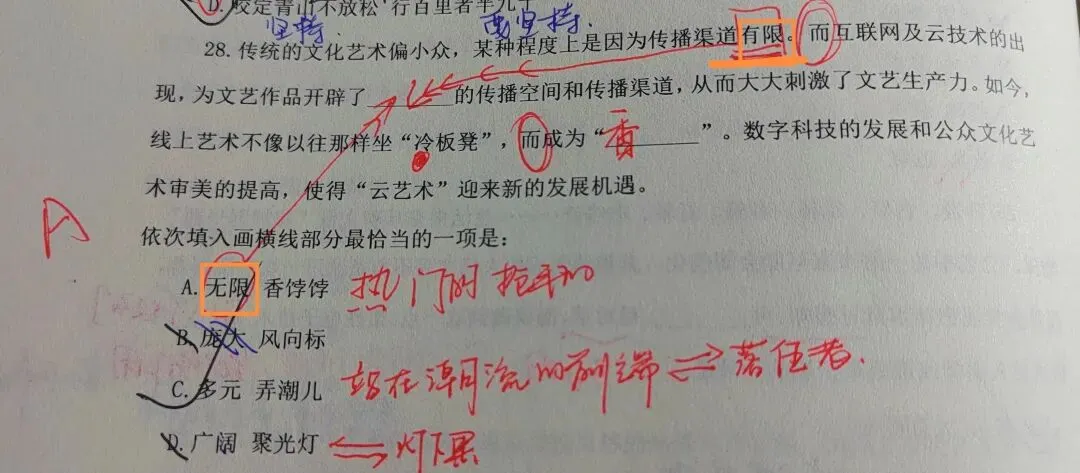 D. 咬定青山不放松 行百里者半九十
坚持. 要坚持.
28. 传统的文化艺术偏小众，某种程度上是因为传播渠道有限。而互联网及云技术的出
现，为文艺作品开辟了________的传播空间和传播渠道，从而大大刺激了文艺生产力。如今，
线上艺术不像以往那样坐“冷板凳”，而成为“香________”。数字科技的发展和公众文化艺
术审美的提高，使得“云艺术”迎来新的发展机遇。
A
依次填入画横线部分最恰当的一项是：
A. 无限 香饽饽 热门的 抢手的
B. 庞大 风向标
C. 多元 弄潮儿 站在潮流的前端 落伍者.
D. 广阔 聚光灯 灯下黑